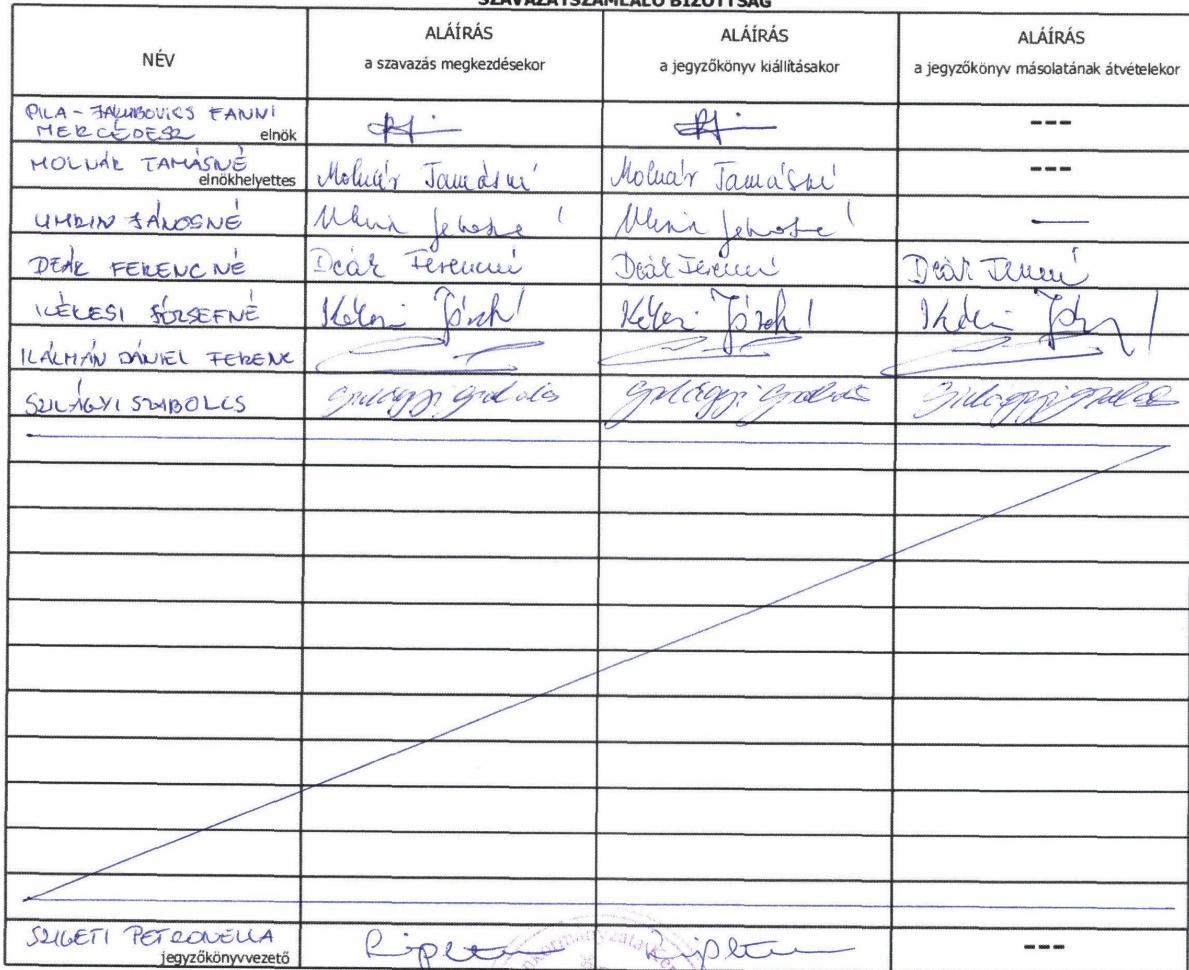 SZAVAZATSZÁMLÁLÓ BIZOTTSÁG
NÉV
ALÁÍRÁS
a szavazás megkezdésekor
ALÁÍRÁS
a jegyzőkönyv kiállításakor
ALÁÍRÁS
a jegyzőkönyv másolatának átvételekor
PILA-JAKUBOVICS FANNI
MERCÉDESZ elnök
---
MOLNÁR TAMÁSNÉ
elnökhelyettes
Molnár Tamásné
Molnár Tamásné
---
UHRIN JÁNOSNÉ
—
DEÁK FERENCNÉ
Deák Ferencné
Deák Ferencné
Deák Ferencné
KÉKESI JÓZSEFNÉ
KÁLMÁN DÁNIEL FERENC
SZILÁGYI SZABOLCS
Szilágyi Szabolcs
Szilágyi Szabolcs
Szilágyi Szabolcs
SZIGETI PETRONELLA
jegyzőkönyvvezető
---